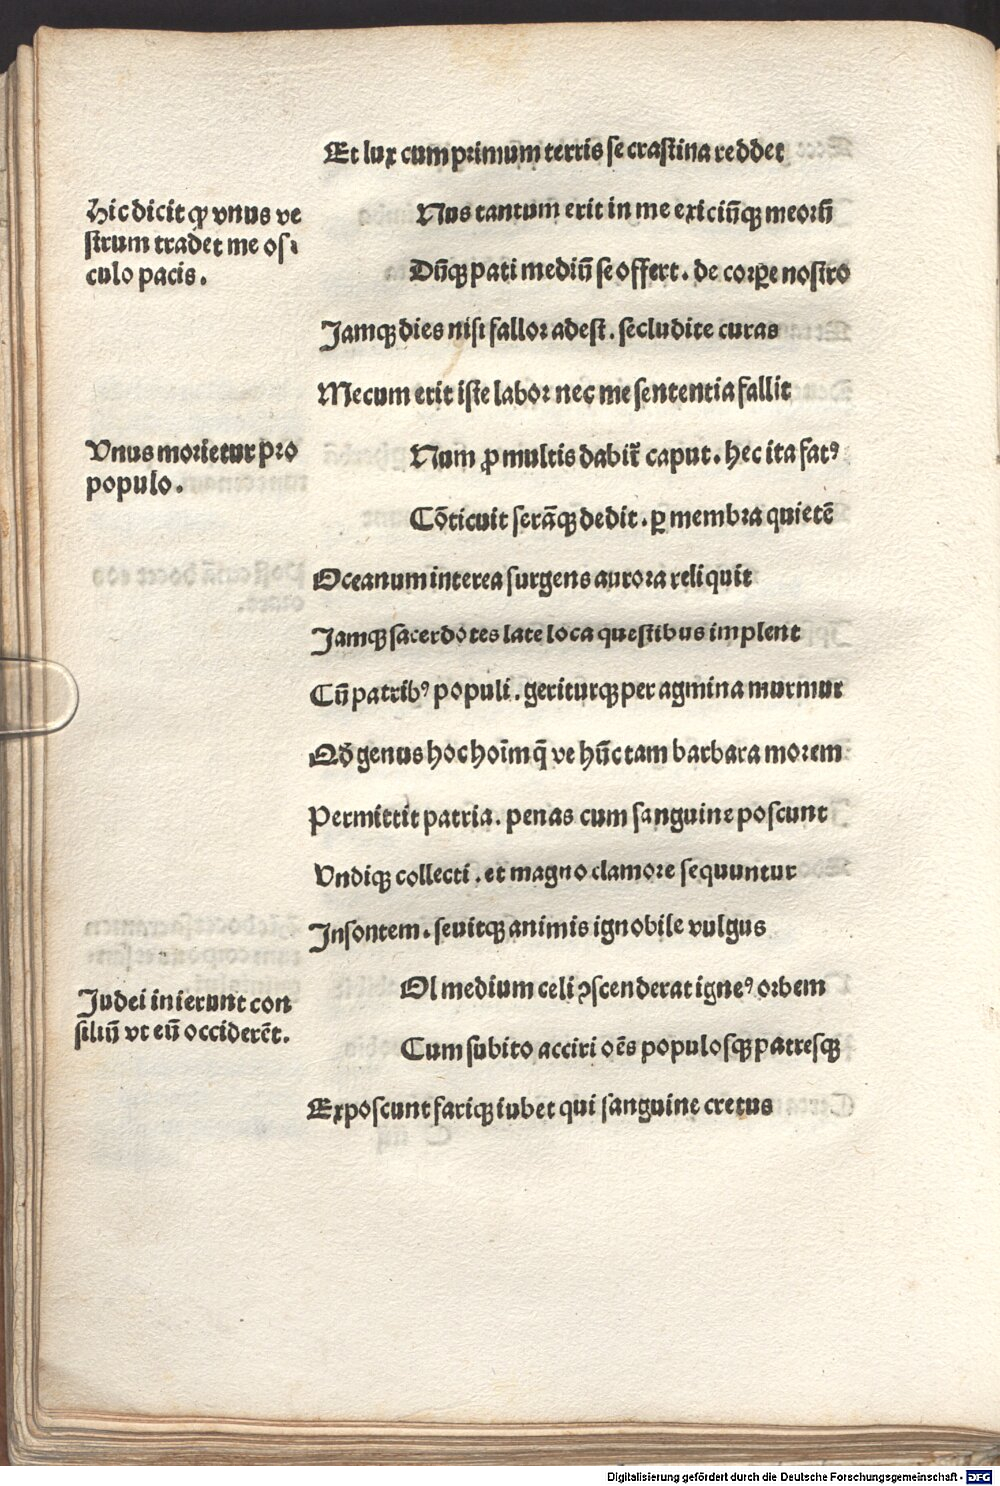 Et lux cum primum terris se crastina reddet
Hic dicit ꝙ vnus ve
strum tradet me os⸗
culo pacis.
Nus tantum erit in me exiciūqꝫ meoꝝ
Dūqꝫ pati mediū se offert. de corꝑe nostro
Jamqꝫ dies nisi fallor adest. secludite curas
Mecum erit iste labor nec me sententia fallit
Vnus morietur pro
populo.
Num ꝓ multis dabit̃ caput. hec ita fatꝰ
Cōticuit serāqꝫ dedit. ꝑ membra quietē
Oceanum interea surgens aurora reliquit
Jamqꝫ sacerdotes late loca questibus implent
Cū patribꝰ populi. geriturqꝫ per agmina murmur
Qd̄ genus hoc hoīm q̄ ve hūc tam barbara morem
Permittit patria. penas cum sanguine poscunt
Vndiqꝫ collecti. et magno clamore sequuntur
Insontem. seuitqꝫ animis ignobile vulgus
Judei inierunt con
siliū vt eū occiderēt.
Ol medium celi ꝯscenderat igneꝰ orbem
Cum subito acciri oēs populosqꝫ patresqꝫ
Exposcunt fariqꝫ iubet qui sanguine cretus
Digitalisierung gefördert durch die Deutsche Forschungsgemeinschaft - DFG